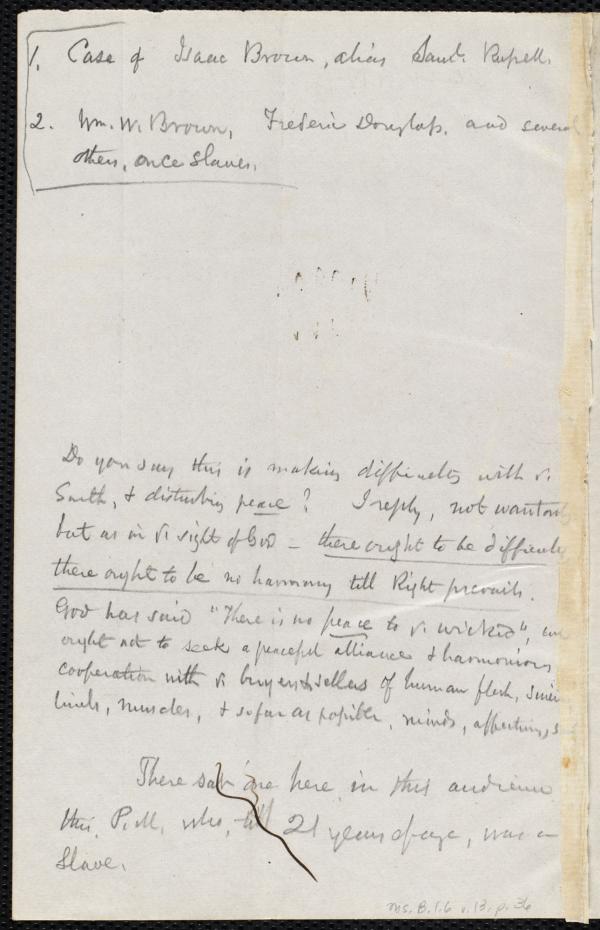 1. Case of Isaac Brown, alias Saml. Russell.
2. Wm. W. Brown, Frederic Douglass, and several
others, once slaves.
Do you say this is making difficulty with
South, & disturbing peace? I reply, not wantonly
but as in sight of God – there ought to be difficulty
there ought to be no harmony till Right prevails.
God has said "There is no peace to wicked",
ought not to seek a peaceful alliance & harmonious
cooperation with buyers & sellers of human flesh,
limbs, muscles, & so far as possible, minds, affections,
There sat one here, in this audience
this P.M. who, till 21 years of age, was a
Slave.
Ms. B.1.6 v.13, p. 36